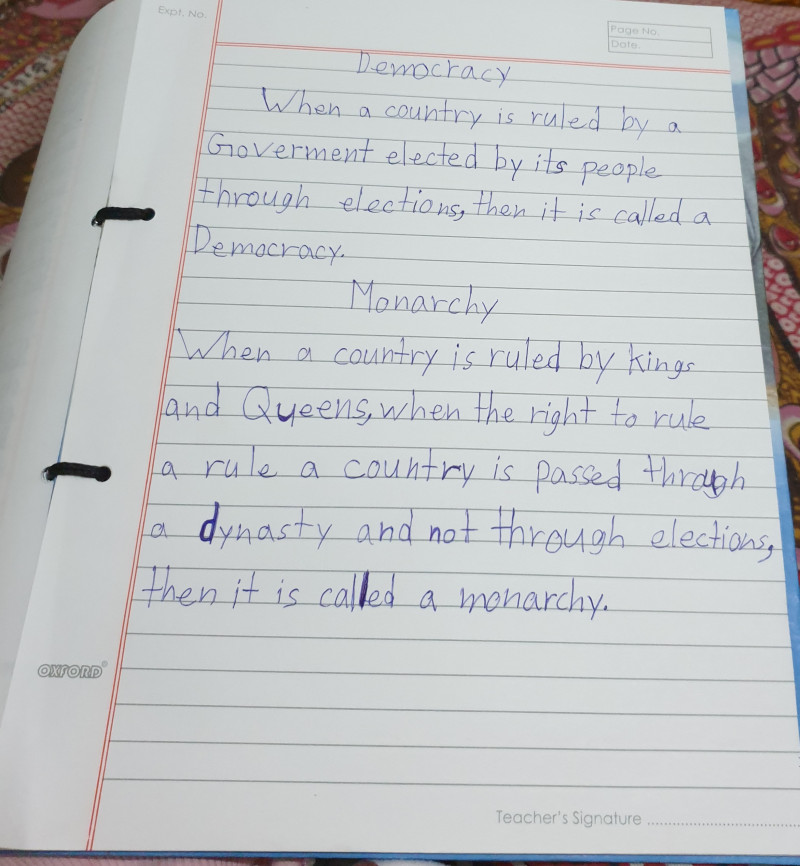 Expt. No.
Page No.
Date.
Democracy
When a country is ruled by a
Goverment elected by its people
through elections, then it is called a
Democracy.
Monarchy
When a country is ruled by kings
and Queens, when the right to rule
a rule a country is passed through
a dynasty and not through elections,
then it is called a monarchy.
OXFORD®
Teacher's Signature ........................